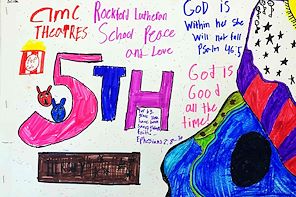 AMC
THEATRES
Rockford Lutheran
School Peace
and Love
GOD is
within her she
will not fall
Psalm 46:5
5TH
GOD is
GOOD
all the
time!
For it's
Ephesians 2:8-10